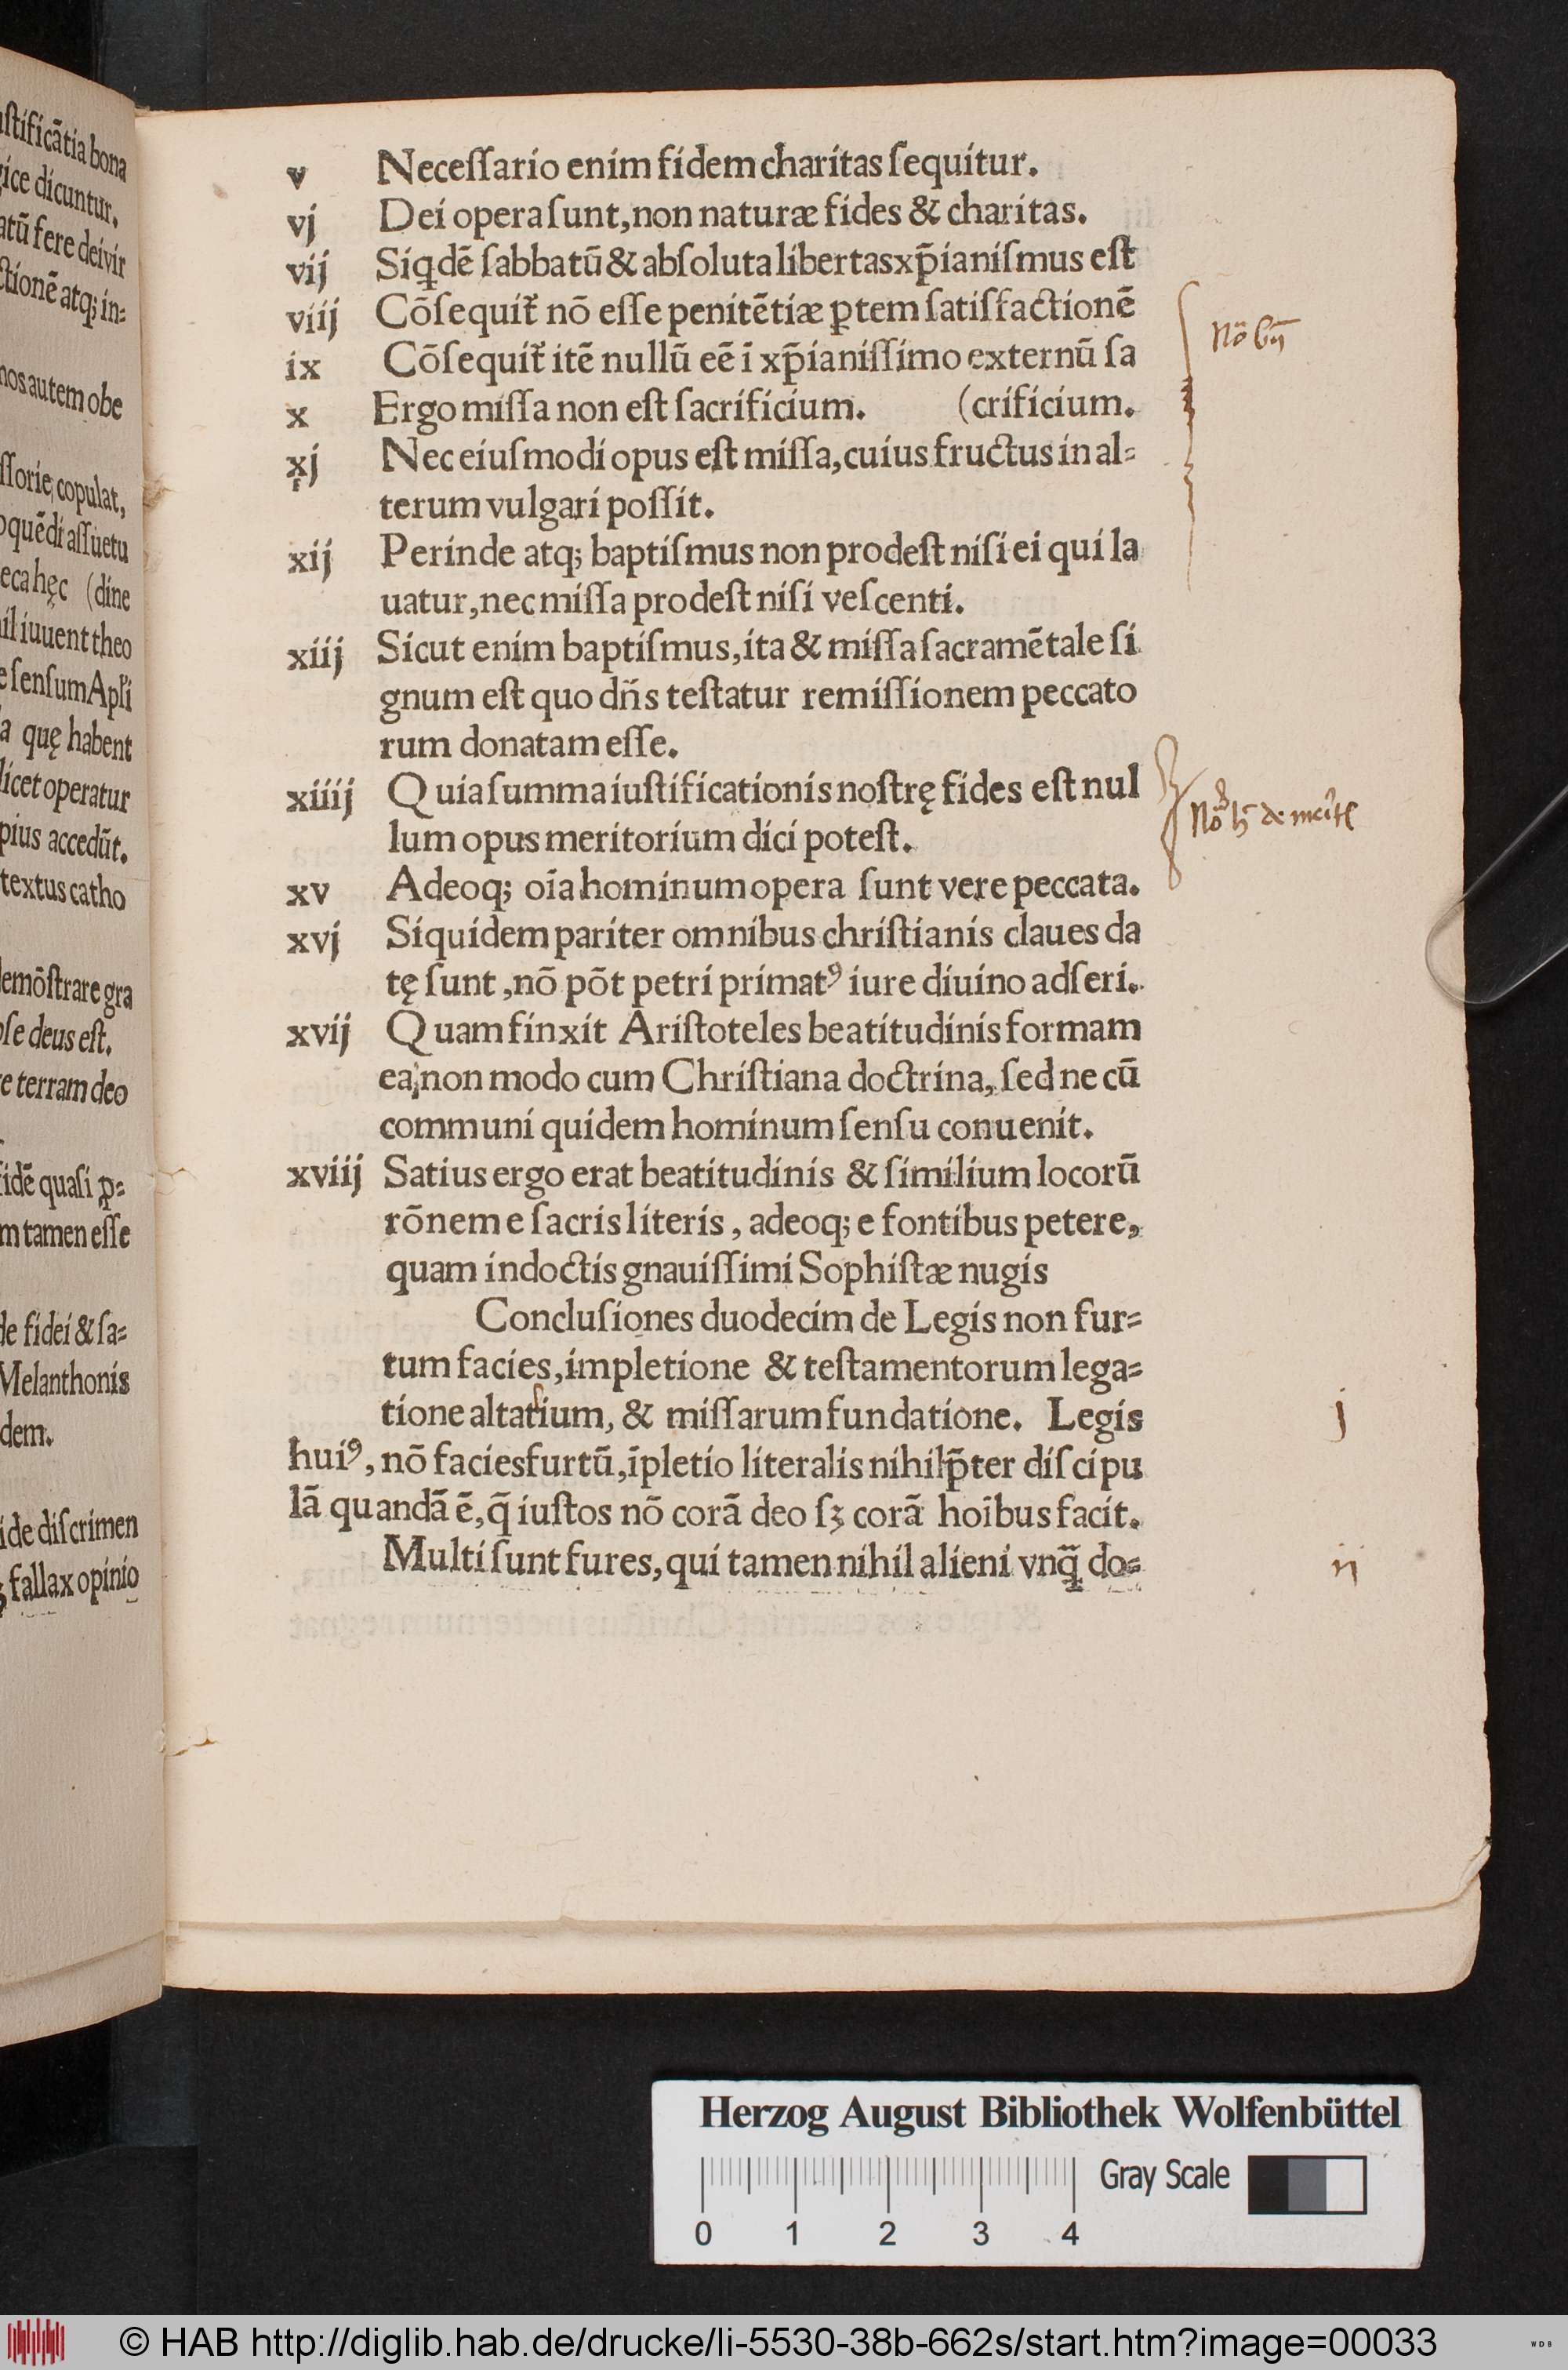 ſtificãtia bona
ice dicuntur.
atũ fere deivir
ctionẽ atq; in⸗
nos autem obe
ſſorie, copulat,
oquẽdi aſſuetu
eca hęc (dine
il iuuent theo
e ſenſum Apľi
a quę habent
licet operatur
pius accedũt.
textus catho
demõſtrare gra
ſe deus eſt.
e terram deo
fidẽ quaſi ꝑ⸗
m tamen eſſe
de fidei & ſa⸗
Melanthonis
dem.
ide diſcrimen
fallax opinio
v Neceſſario enim fidem charitas ſequitur.
vj Dei opera ſunt, non naturæ fides & charitas.
vij Siꝗdẽ ſabbatũ & abſoluta libertas xp̃ianiſmus eſt
viij Cõſequit᷑ nõ eſſe penitẽtiæ ꝑtem ſatiſfactionẽ
ix Cõſequit᷑ itẽ nullũ eẽ ĩ xp̃ianiſſimo externũ ſa
x Ergo miſſa non eſt ſacrificium. (crificium.
xj Nec eiuſmodi opus eſt miſſa, cuius fructus in al⸗
terum vulgari poſſit.
xij Perinde atq; baptiſmus non prodeſt niſi ei qui la
uatur, nec miſſa prodeſt niſi veſcenti.
xiij Sicut enim baptiſmus, ita & miſſa ſacramẽtale ſi
gnum eſt quo dñs teſtatur remiſſionem peccato
rum donatam eſſe.
xiiij Quia ſumma iuſtificationis noſtrę fides eſt nul
lum opus meritorium dici poteſt.
xv Adeoq; oĩa hominum opera ſunt vere peccata.
xvj Siquidem pariter omnibus chriſtianis claues da
tę ſunt, nõ põt petri primatꝰ iure diuino adſeri.
xvij Quam finxit Ariſtoteles beatitudinis formam
ea, non modo cum Chriſtiana doctrina, ſed ne cũ
communi quidem hominum ſenſu conuenit.
xviij Satius ergo erat beatitudinis & ſimilium locorũ
rõnem e ſacris literis, adeoq; e fontibus petere,
quam indoctis gnauiſſimi Sophiſtæ nugis
Concluſiones duodecim de Legis non fur⸗
tum facies, impletione & teſtamentorum lega⸗
tione altarium, & miſſarum fundatione. Legis
huiꝰ, nõ facies furtũ, ĩpletio literalis nihil p̃ter diſcipu
lã quandã ẽ, q̃ iuſtos nõ corã deo ſꝫ corã hoĩbus facit.
Multi ſunt fures, qui tamen nihil alieni vnꝗ̃ do⸗
j
ij
Herzog August Bibliothek Wolfenbüttel
Gray Scale
0 1 2 3 4
© HAB http://diglib.hab.de/drucke/li-5530-38b-662s/start.htm?image=00033